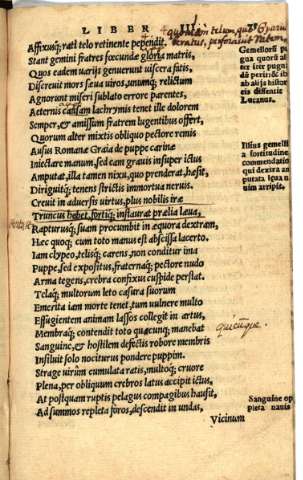 LIBER III.
Affixusq; rati telo retinente pependit.
Stant gemini fratres fœcundæ gloria matris,
Quos eadem uarijs genuerunt uiscera fatis,
Discreuit mors sæua uiros, unumq; relictum
Agnorunt miseri sublato errore parentes,
Aeternis caussam lachrymis tenet ille dolorem
Semper, & amissum fratrem lugentibus offert,
Quorum alter mixtis obliquo pectine remis
Ausus Romanæ Graia de puppe carinæ
Iniectare manum, sed eam grauis insuper ictus
Amputat, illa tamen nixu, quo prenderat, hæsit,
Diriguitq; tenens strictis immortua neruis.
Creuit in aduersis uirtus, plus nobilis iræ
Truncus habet, fortiq; instaurat prælia læua,
Rapturusq; suam procumbit in æquora dextram,
Hæc quoq; cum toto manus est abscissa lacerto.
Iam clypeo, telisq; carens, non conditur ima
Puppe, sed expositus, fraternaq; pectore nudo
Arma tegens, crebra confixus cuspide perstat.
Telaq; multorum leto casura suorum
Emerita iam morte tenet, tum uulnere multo
Effugientem animam lassos collegit in artus,
Membraq; contendit toto quæcunq; manebat
Sanguine, & hostilem defectis robore membris
Insiluit solo nociturus pondere puppim.
Strage uirûm cumulata ratis, multoq; cruore
Plena, per obliquum crebros latus accipit ictus,
At postquam ruptis pelagus compagibus hausit,
Ad summos repleta foros, descendit in undas,
Vicinum
Gemelloru pu
gua quorũ al
ter iter pugnã
dũ perijt: ibi
ab alijs histo
rijs dissentit
Lucanus.
Illius gemelli
a fortitudine
commendatio
qui dextra am
putata ipsa na
uim arripit.
quicunque.
Sanguine op
pleta nauis